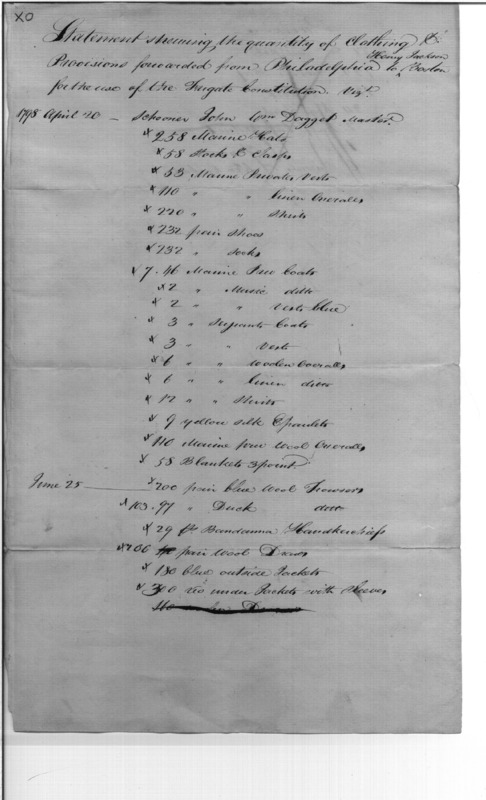 XO
Statement shewing the quantity of Clothing &
Henry Jackson
Provisions forwarded from Philadelphia to ^ Boston
for the use of the Frigate Constitution. Vizt.
1798 April 20 – Schooner John Wm Dagget Master.
x 238 Marine Hats
x 58 Stocks & Clasps
x 53 Marine Privates Vests
x 110 " " linen Overalls
x 220 " " Shirts
x 232 pair Shoes
x 232 " Socks
x 7. 46 Marine Coats
x 2 " Music ditto
x 2 " " Vests blue
x 3 " Serjeants Coats
x 3 " " Vests
x 6 " " Woolen Overalls
x 6 " " linen ditto
x 12 " " Shirts
x 9 yellow silk Epaulets
x 110 Marine Wool Overalls
x 58 Blankets 3 point
June 25 x 200 pair blue Wool Trowsers
x 103. 97 " Duck ditto
x 29 Bandanna Handkerchiefs
x 200 pair Wool Draws
x 180 blue outside Jackets
x 300 do under Jackets with Sleeves